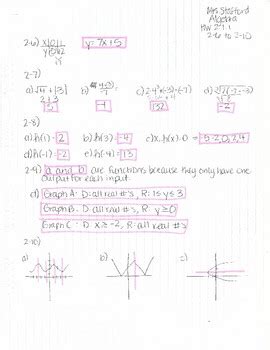 Mrs. Stafford
Algebra
HW 2.1.1
2-6 to 2-10
2-6) x | 0 | 1 y=7x+5
2-7)
a) √4 + |3| b) c) 2-4²+(-3)-(-7) d)
2+3
5 -1 -2
2-8)
a) h(1)=2 b) h(3)=-4 c) x, h(x)=0 = -5, -2, 0, 2, 4
d) h(-1)=-2 e) h(-4)=
2-9) a and b are functions because they only have one
output for each input
d) Graph A: D: all real #'s, R: 1≤y≤3
Graph B: D: all real #'s, R: y≥0
Graph C: D: x≥-2, R: all real #'s
2-10)
a) b) c)